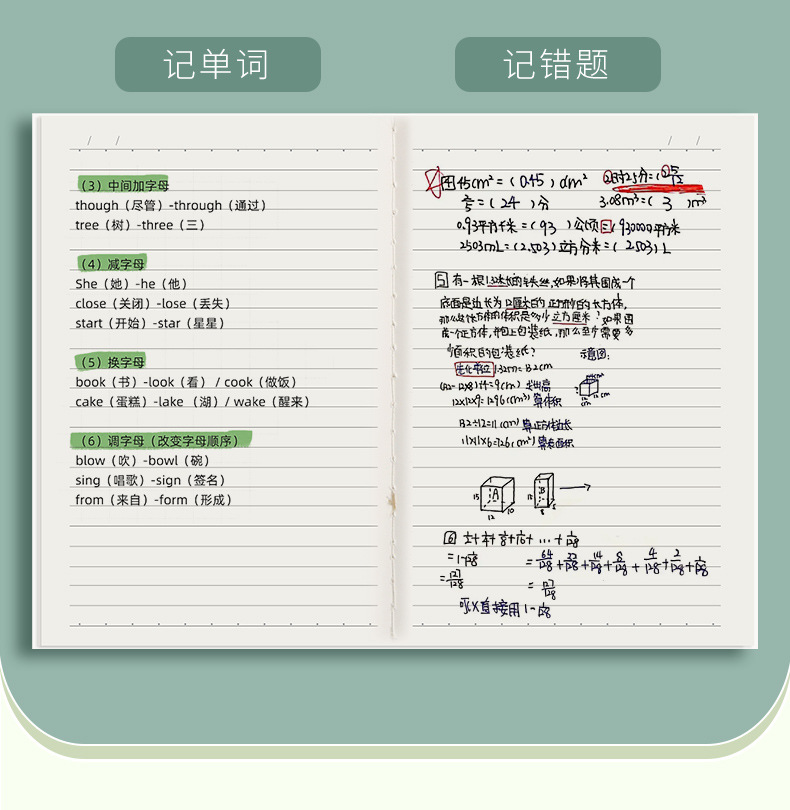 记单词
记错题
/ /
(3) 中间加字母
though（尽管）-through（通过）
tree（树）-three（三）
(4) 减字母
She（她）-he（他）
close（关闭）-lose（丢失）
start（开始）-star（星星）
(5) 换字母
book（书）-look（看） / cook（做饭）
cake（蛋糕）-lake （湖）/ wake（醒来）
(6) 调字母（改变字母顺序）
blow（吹）-bowl（碗）
sing（唱歌）-sign（签名）
from（来自）-form（形成）
/ /
45cm²=( 0.45 ) dm²
=( 24 )分 3.08m³=( 3 )m³
0.93平方千米=( 93 )公顷=( 930000平方米
2503mL=(2.503)立方分米=( 2.503 ) L
5 有一根1.32米长的铁丝,如果将其围成一个
底面是边长为12厘米的正方形的长方体,
那么这个长方体的体积是多少立方厘米? 如果围
成一个正方体,并包上包装纸,那么至少需要多
少面积的包装纸? 示意图:
1.32m=132cm
(132-12×8)÷4=9(cm) 求出高
12×12×9=1296(cm³) 算体积
132÷12=11(cm) 算正方体边长
11×11×6=726(cm²) 算表面积
A B
12 10 8
6
=1-1/128 =64/128+32/128+14/128+8/128+4/128+2/128+1/128
=127/128 =127/128
可以直接用1-1/128